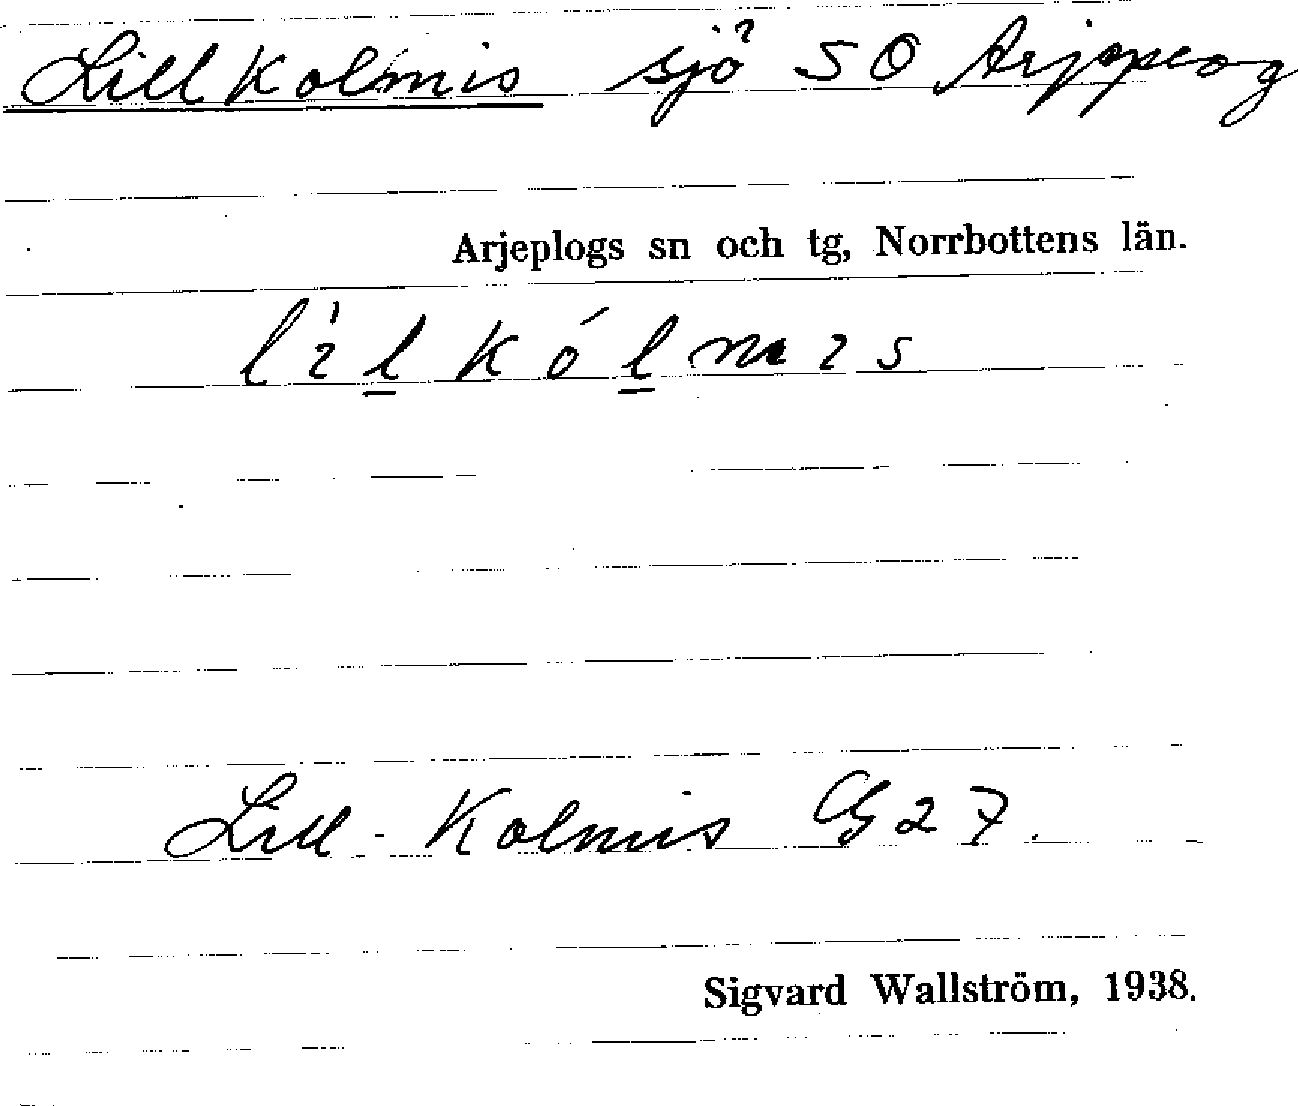 Lillkolmis sjö SO Arjeplog
Arjeplogs sn och tg, Norrbottens län.
lìlkólmis
Lill-Kolmis 27.
Sigvard Wallström, 1938.